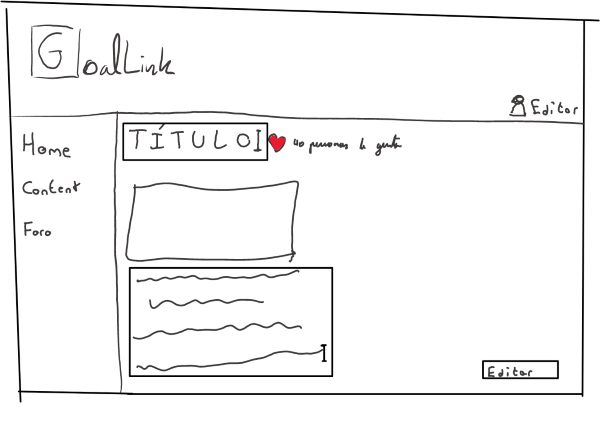 GoalLink
Editor
Home
Content
Foro
TÍTULO
40 personas le gusta
Editar